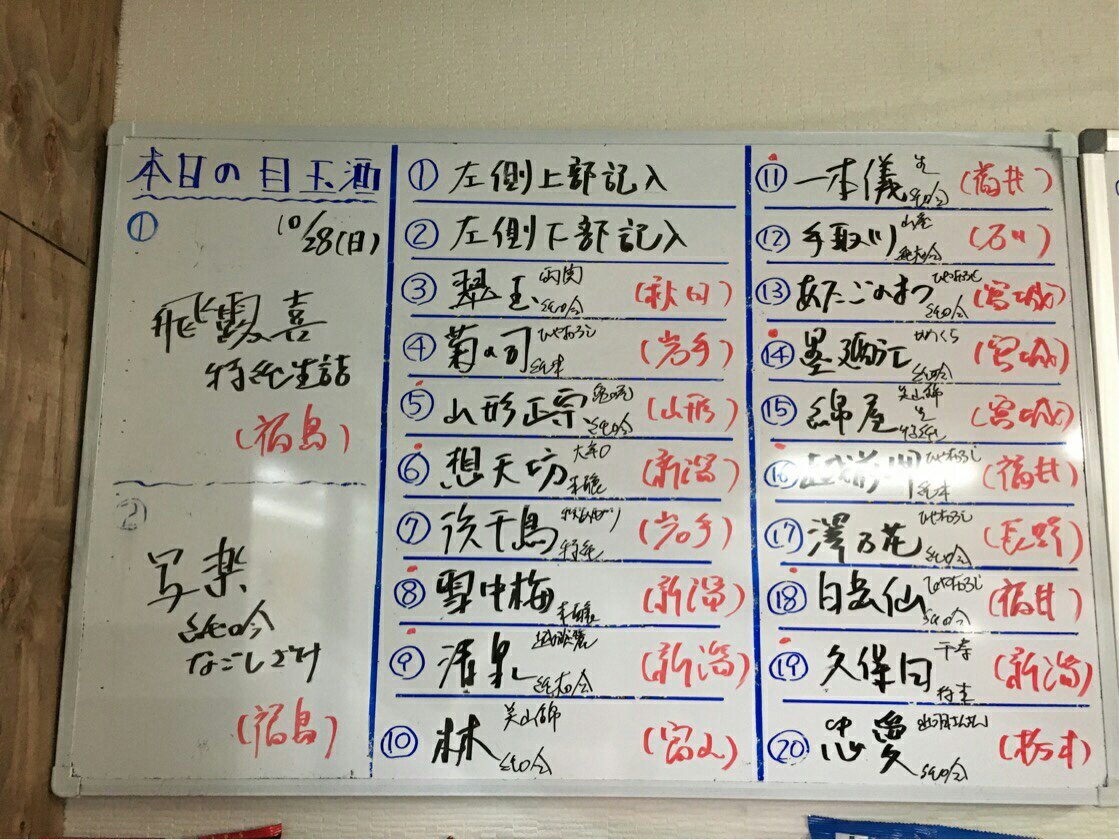 本日の目玉酒
① 10/28(日)
飛露喜
特純生詰
(福島)
②
写楽
純吟
なごしざけ
(福島)
① 左側上部記入
② 左側下部記入
③ 翠玉 純吟 (秋田)
④ 菊の司 ひやおろし 純米 (岩手)
⑤ 山形正宗 純吟 (山形)
⑥ 想天坊 大辛口 本醸 (新潟)
⑦ 浜千鳥 特純 (岩手)
⑧ 雪中梅 本醸 (新潟)
⑨ 清泉 純吟 (新潟)
⑩ 林 美山錦 純吟 (富山)
⑪ 一本儀 生 純吟 (福井)
⑫ 手取川 山廃 純吟 (石川)
⑬ あたごのまつ ひやおろし 純吟 (宮城)
⑭ 墨廼江 純吟 (宮城)
⑮ 綿屋 美山錦 生 特純 (宮城)
⑯ 越前岬 ひやおろし 純米 (福井)
⑰ 澤乃花 ひやおろし 純吟 (長野)
⑱ 白岳仙 ひやおろし 純吟 (福井)
⑲ 久保田 千寿 特本 (新潟)
⑳ 忠愛 純吟 (栃木)